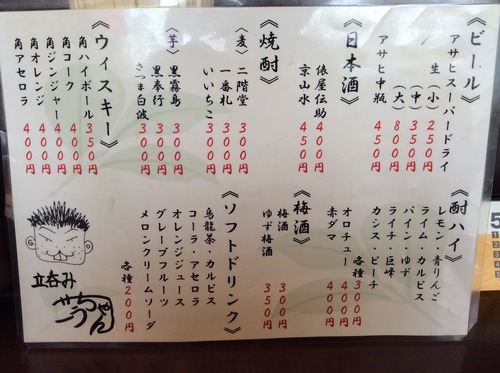 《ビール》
アサヒスーパードライ
生（小）250円
（中）350円
（大）800円
アサヒ中瓶 450円
《日本酒》
俵屋伝助 400円
京山水 450円
《焼酎》
〈麦〉二階堂 300円
一番札 300円
いいちこ 300円
〈芋〉黒霧島 300円
黒奉行 300円
さつま白波 300円
《ウィスキー》
角ハイボール 350円
角コーク 400円
角ジンジャー 400円
角オレンジ 400円
角アセロラ 400円
《酎ハイ》
レモン・青りんご
ライム・カルピス
パイン・ゆず
ライチ・巨峰
カシス・ピーチ
各種300円
オロチュー 400円
赤ダマ 400円
《梅酒》
梅酒 300円
ゆず梅酒 350円
《ソフトドリンク》
烏龍茶・カルピス
コーラ・アセロラ
オレンジジュース
グレープフルーツ
メロンクリームソーダ
各種200円
立呑み
せっちゃん
5
1
2
3
4